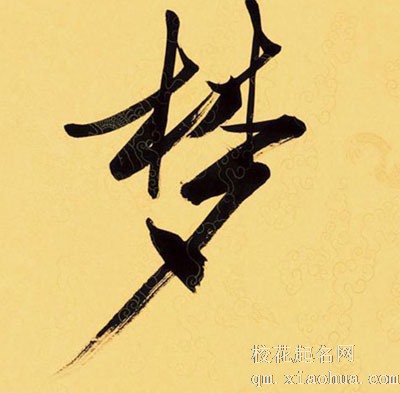 梦
校花起名网
qm.xiaohua.com